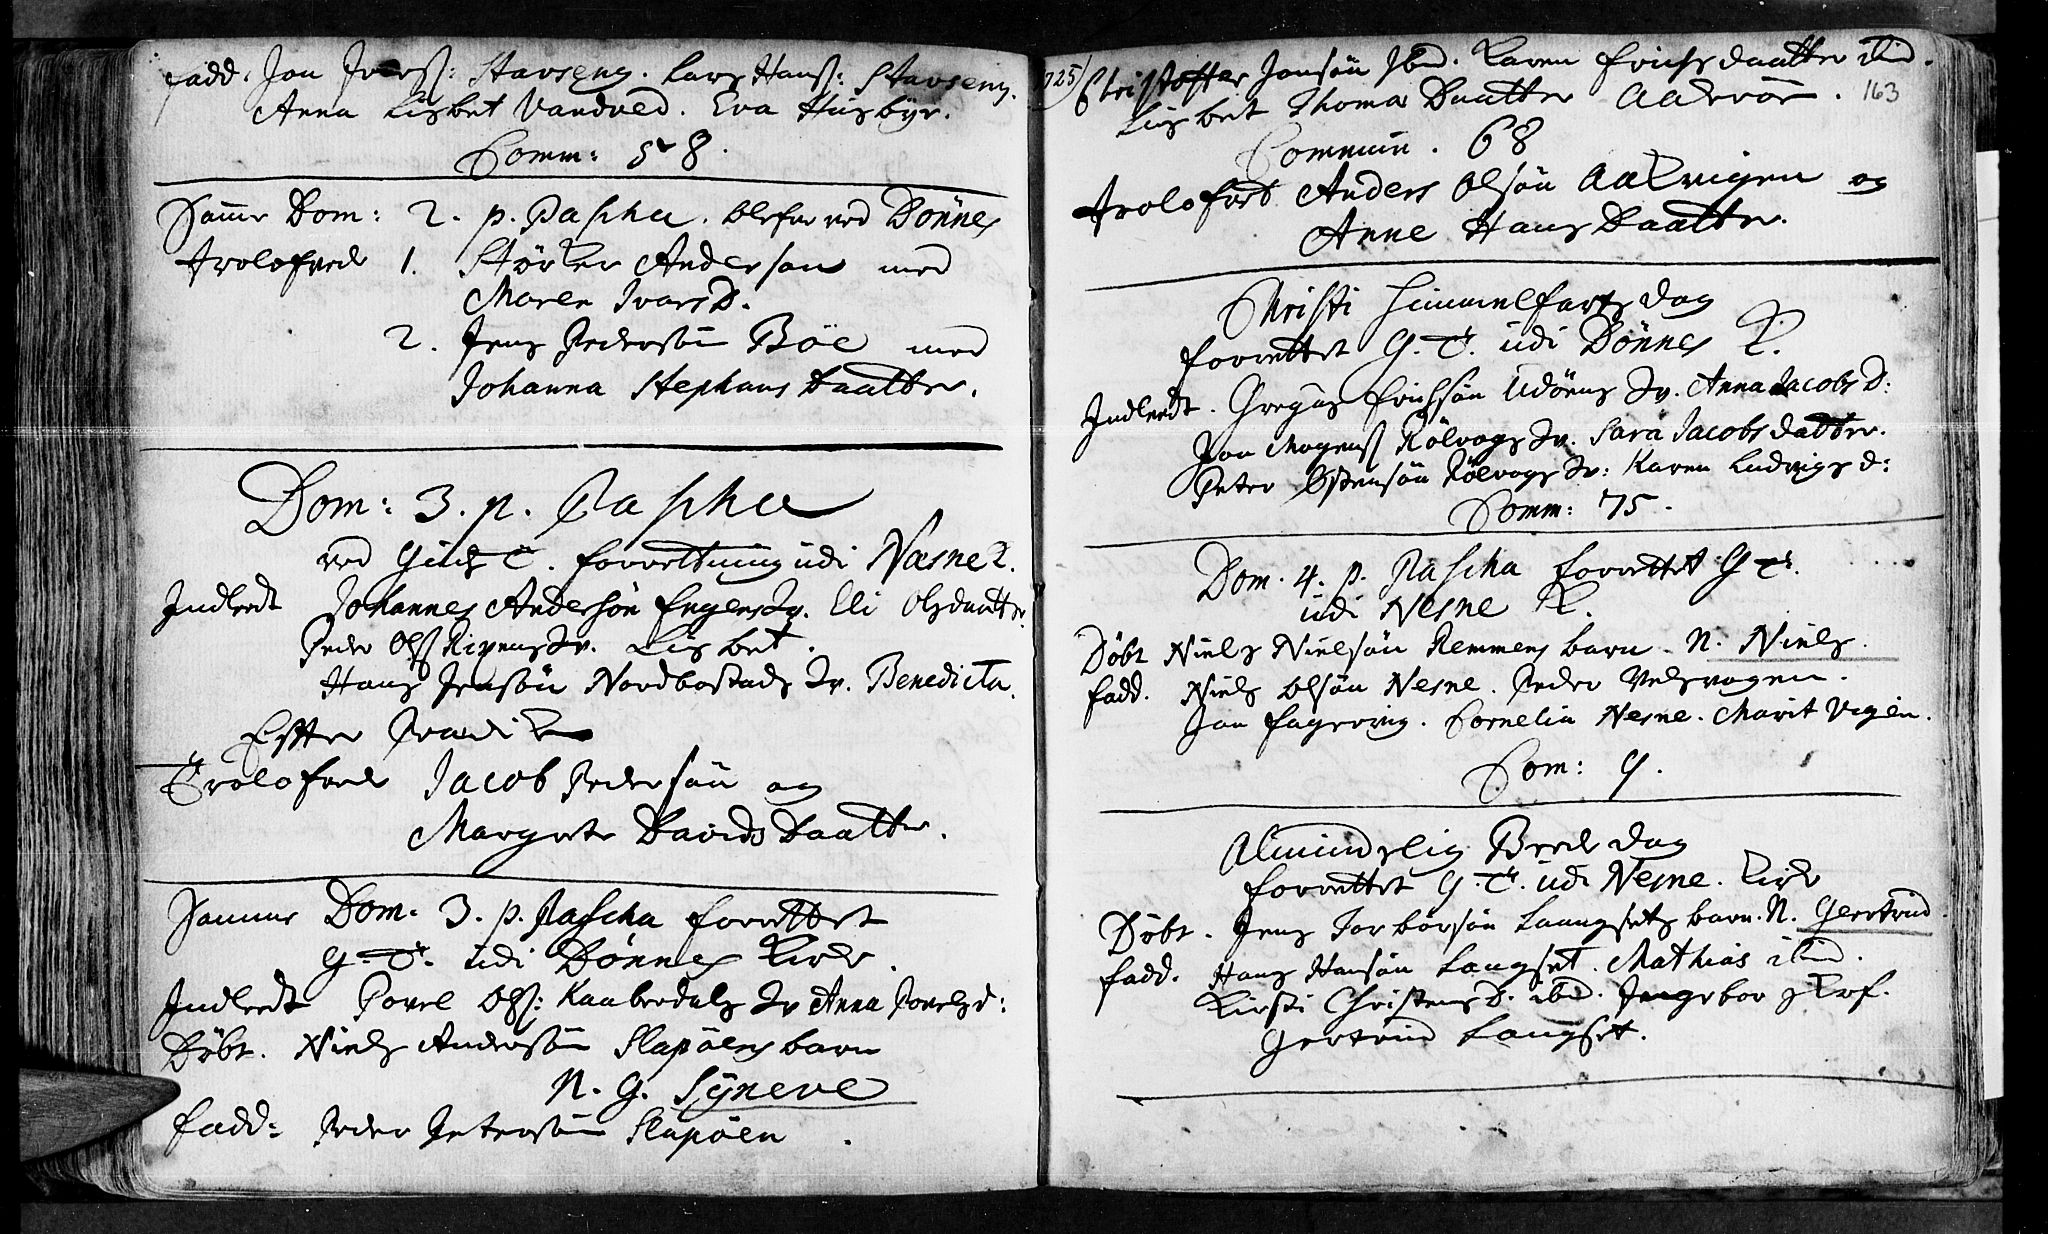 fadd: Jon Iverss: Stavseng. Lars Hanss: Stavseng.
Anna Lisbet Vandved. Eva Husbyr.
Comm: 58.
Samme Dom: 2. p. Pascha. Olefar ved Dönnes
Trolofved 1. Störker Anderson med
Maren IvarsD.
2. Jens Pedersön Böe med
Johanna Stephans Daatter.
Dom: 3. p. Pascha
ved Guds T. forrettning udi Næsne K.
Indleedt Johannes Andersön Engens Qv. Eli Olsdaatter.
Peder Olss Ripens Qv. Lisbet.
Hans Jensön Nordbostads Qv. Benedicta.
Efter Prædik
Trolofved Jacob Pedersön og
Margrete Davids Daatter.
Samme Dom. 3. p. Pascha forrettet
G. T. udi Dönnes Kirke.
Indleedt Povel Ols: Kaaberdals Qv Anna Povelsd:
Döbt. Niels Andersön Slapöens barn
N. G. Syneve
fadd: Peder Petersön Slapöen.
1725) Christoffer Jonsön Ibid. Karen Erichsdaatter ibid. 163
Lisbeth Thomæ Daatter Aakvig.
Commun. 68
Trolofved Anders Olsön Aakvigen og
Anne Hans Daatter.
Christi Himmelfarts dag
forrettet G. T. udi Dönnes K.
Indleedt. Gregus Erichsön Udöens Qv. Anna Jacobs D:
Jon Mogenss Rölvogs Qv. Sara Jacobsdatter.
Peter Östensön Rölvogs Qv: Karen Ludvigs d:
Comm: 75.
Dom. 4. p. Pascha forrettet G. T.
udi Nesne K.
Döbt Niels Nielsön Remmens barn N. Niels.
fadd. Niels Olsön Nesne. Peder Velsvogen.
Jon Fagerving. Cornelia Nesne. Marit Vigen.
Com: 9.
Almindelig Beededag
forrettet G. T. udi Nesne. Kirke
Döbt. Jens Torbörsön Laangsets barn. N. Gertrud.
fadd. Hans Hansön Langset. Mathias ibid.
Kirsti Christens D. ibid. Ingebor
Gertrud Langset.